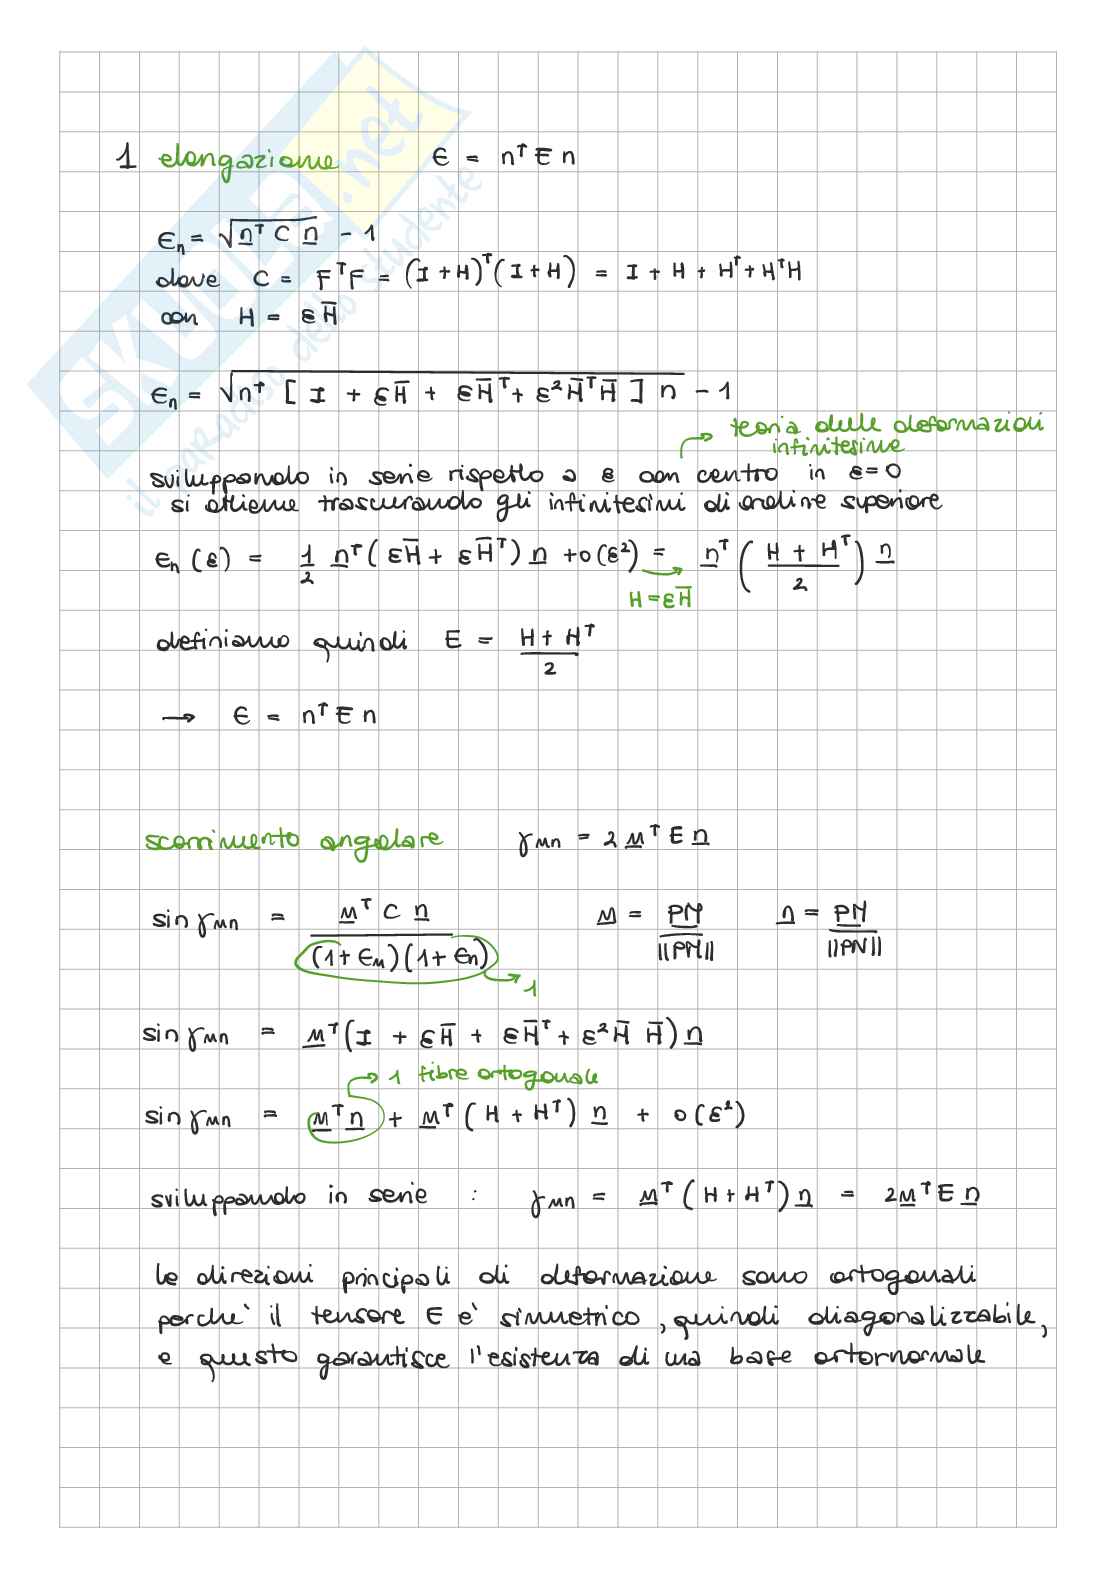 SKUOLA.net
il paradiso dello studente
1 elongazione ϵ = nᵀ E n
ϵₙ = √(nᵀ C n) - 1
dove C = FᵀF = (I + H)ᵀ(I + H) = I + H + Hᵀ + HᵀH
con H = εH̅
ϵₙ = √(nᵀ [ I + εH̅ + εH̅ᵀ + ε²H̅ᵀH̅ ] n) - 1
teoria delle deformazioni
infinitesime
sviluppando in serie rispetto a ε con centro in ε=0
si ottiene trascurando gli infinitesimi di ordine superiore
ϵₙ(ε) = 1/2 nᵀ(εH̅ + εH̅ᵀ) n + o(ε²) = nᵀ ( (H + Hᵀ)/2 ) n
H = εH̅
definiamo quindi E = (H + Hᵀ)/2
→ ϵ = nᵀ E n
scorrimento angolare γmn = 2 mᵀ E n
sin γmn = mᵀ C n / (1 + ϵm)(1 + ϵn) m = PM/||PM|| n = PN/||PN||
→ 1
sin γmn = mᵀ(I + εH̅ + εH̅ᵀ + ε²H̅ H̅) n
→ 1 fibre ortogonale
sin γmn = mᵀn + mᵀ(H + Hᵀ) n + o(ε²)
sviluppando in serie : γmn = mᵀ(H + Hᵀ) n = 2mᵀ E n
le direzioni principali di deformazione sono ortogonali
perchè il tensore E è simmetrico, quindi diagonalizzabile,
e questo garantisce l'esistenza di una base ortornormale